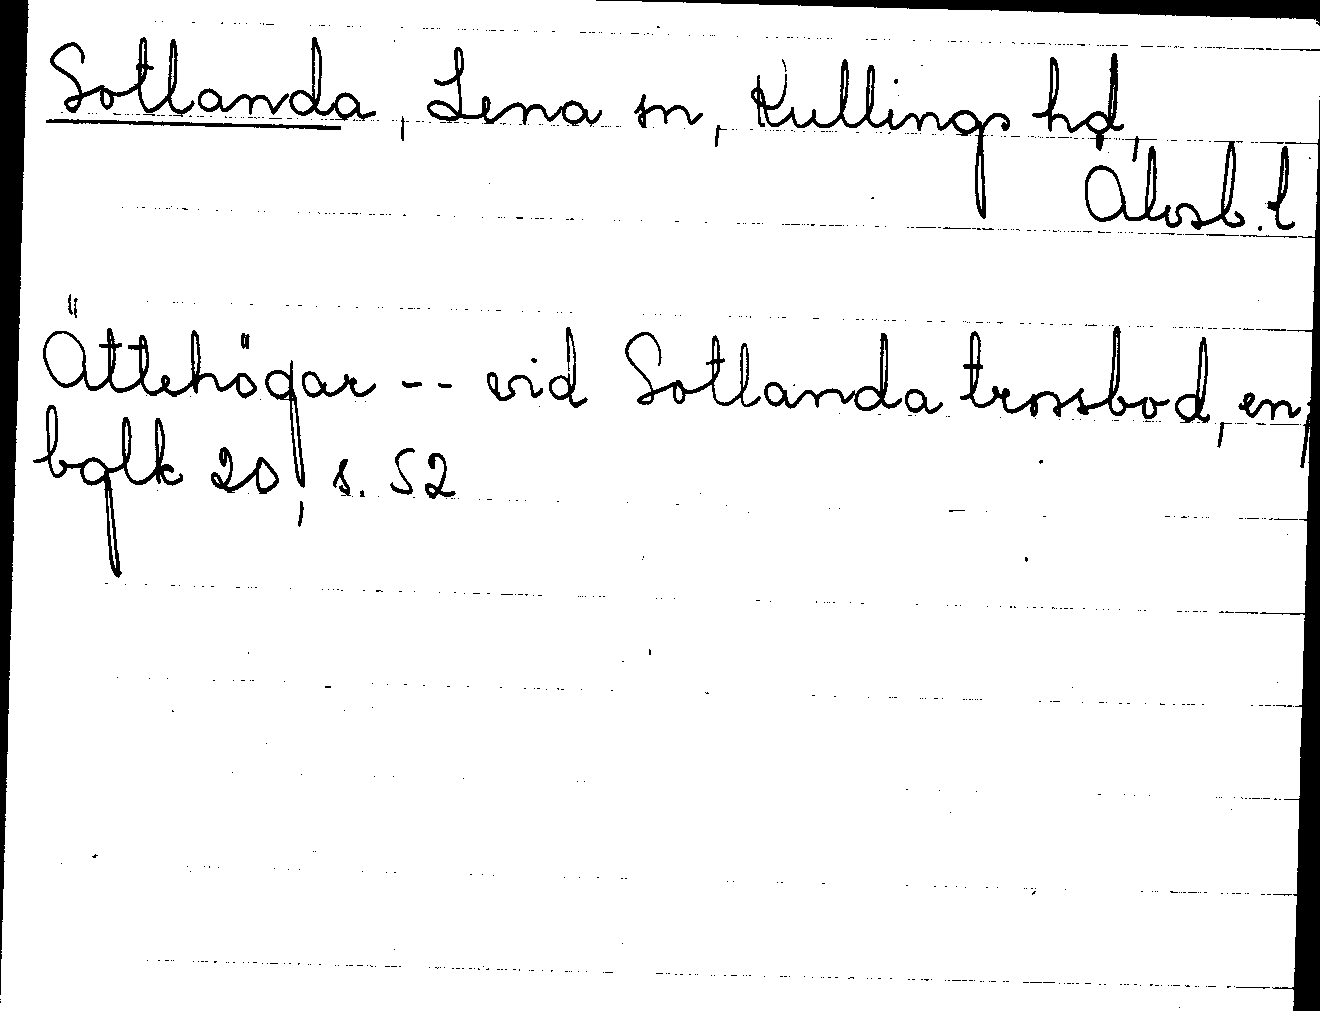 Sotlanda, Lena sn, Kullings hd,
Älvsb. l
Ättehögar -- vid Sotlanda trossbod, en,
bglk 20, s. 52